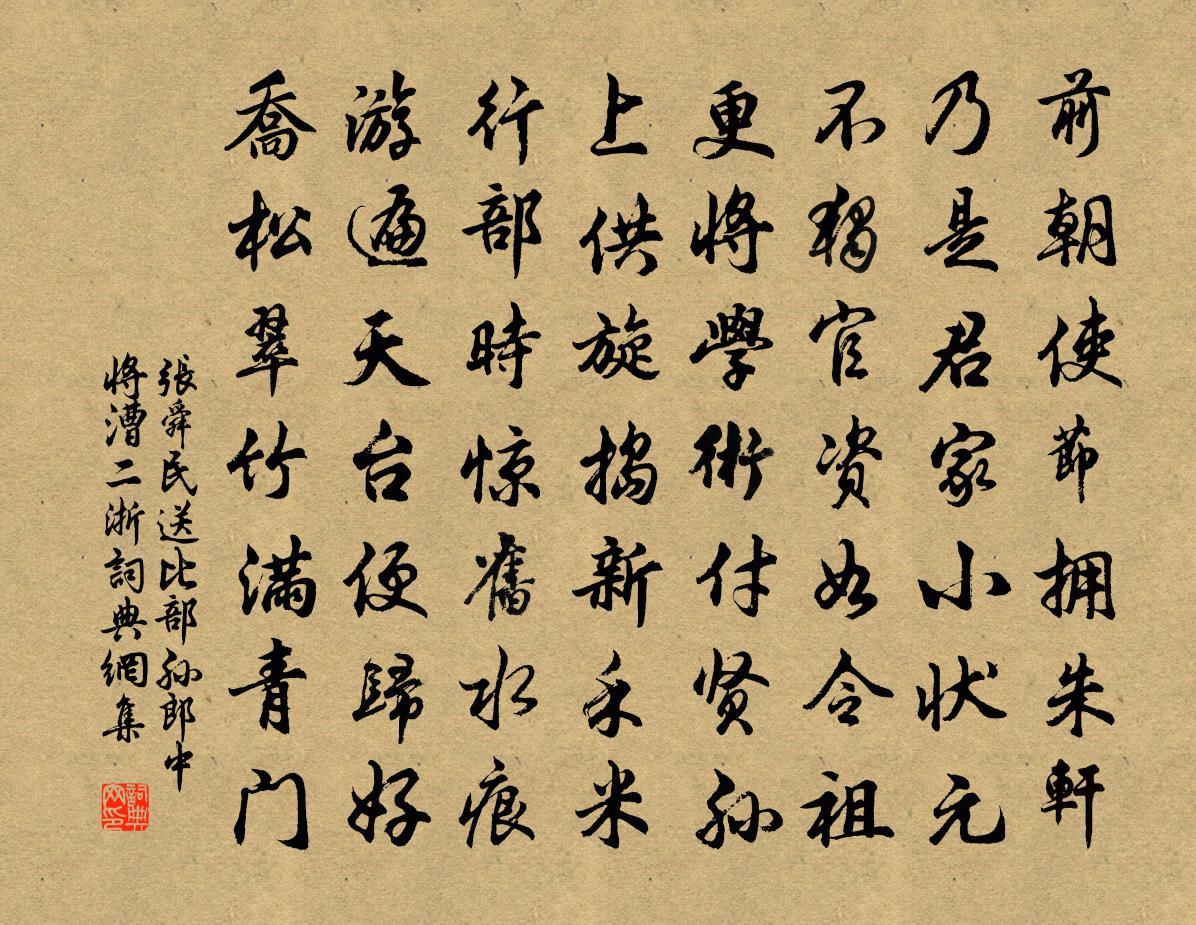 前朝使節拥朱軒
乃是君家小状元
不独官资如令祖
更将學術付贤孙
上供旋捣新禾米
行部時惊舊水痕
游遍天台便歸好
喬松翠竹满青门
張舜民送比部孙郎中
将漕二浙詞典網集
詞典网印